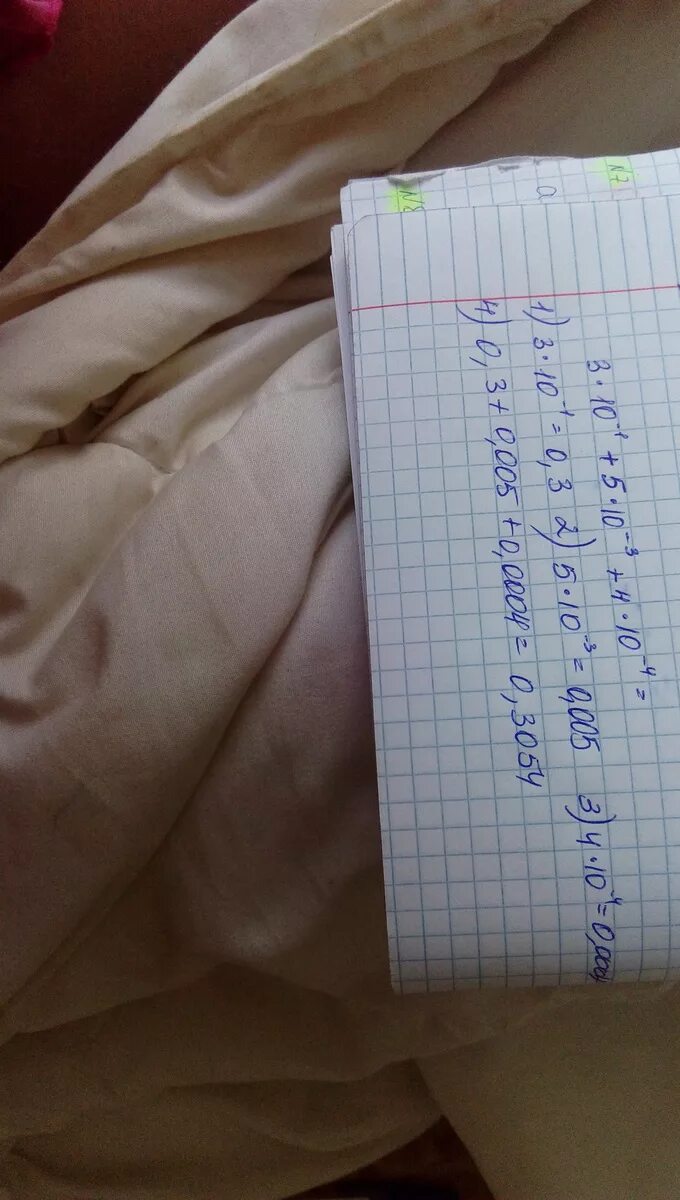 N7
а
N8
3·10⁻¹ + 5·10⁻³ + 4·10⁻⁴ =
1) 3·10⁻¹ = 0,3 2) 5·10⁻³ = 0,005 3) 4·10⁻⁴ = 0,0004
4) 0,3 + 0,005 + 0,0004 = 0,3054